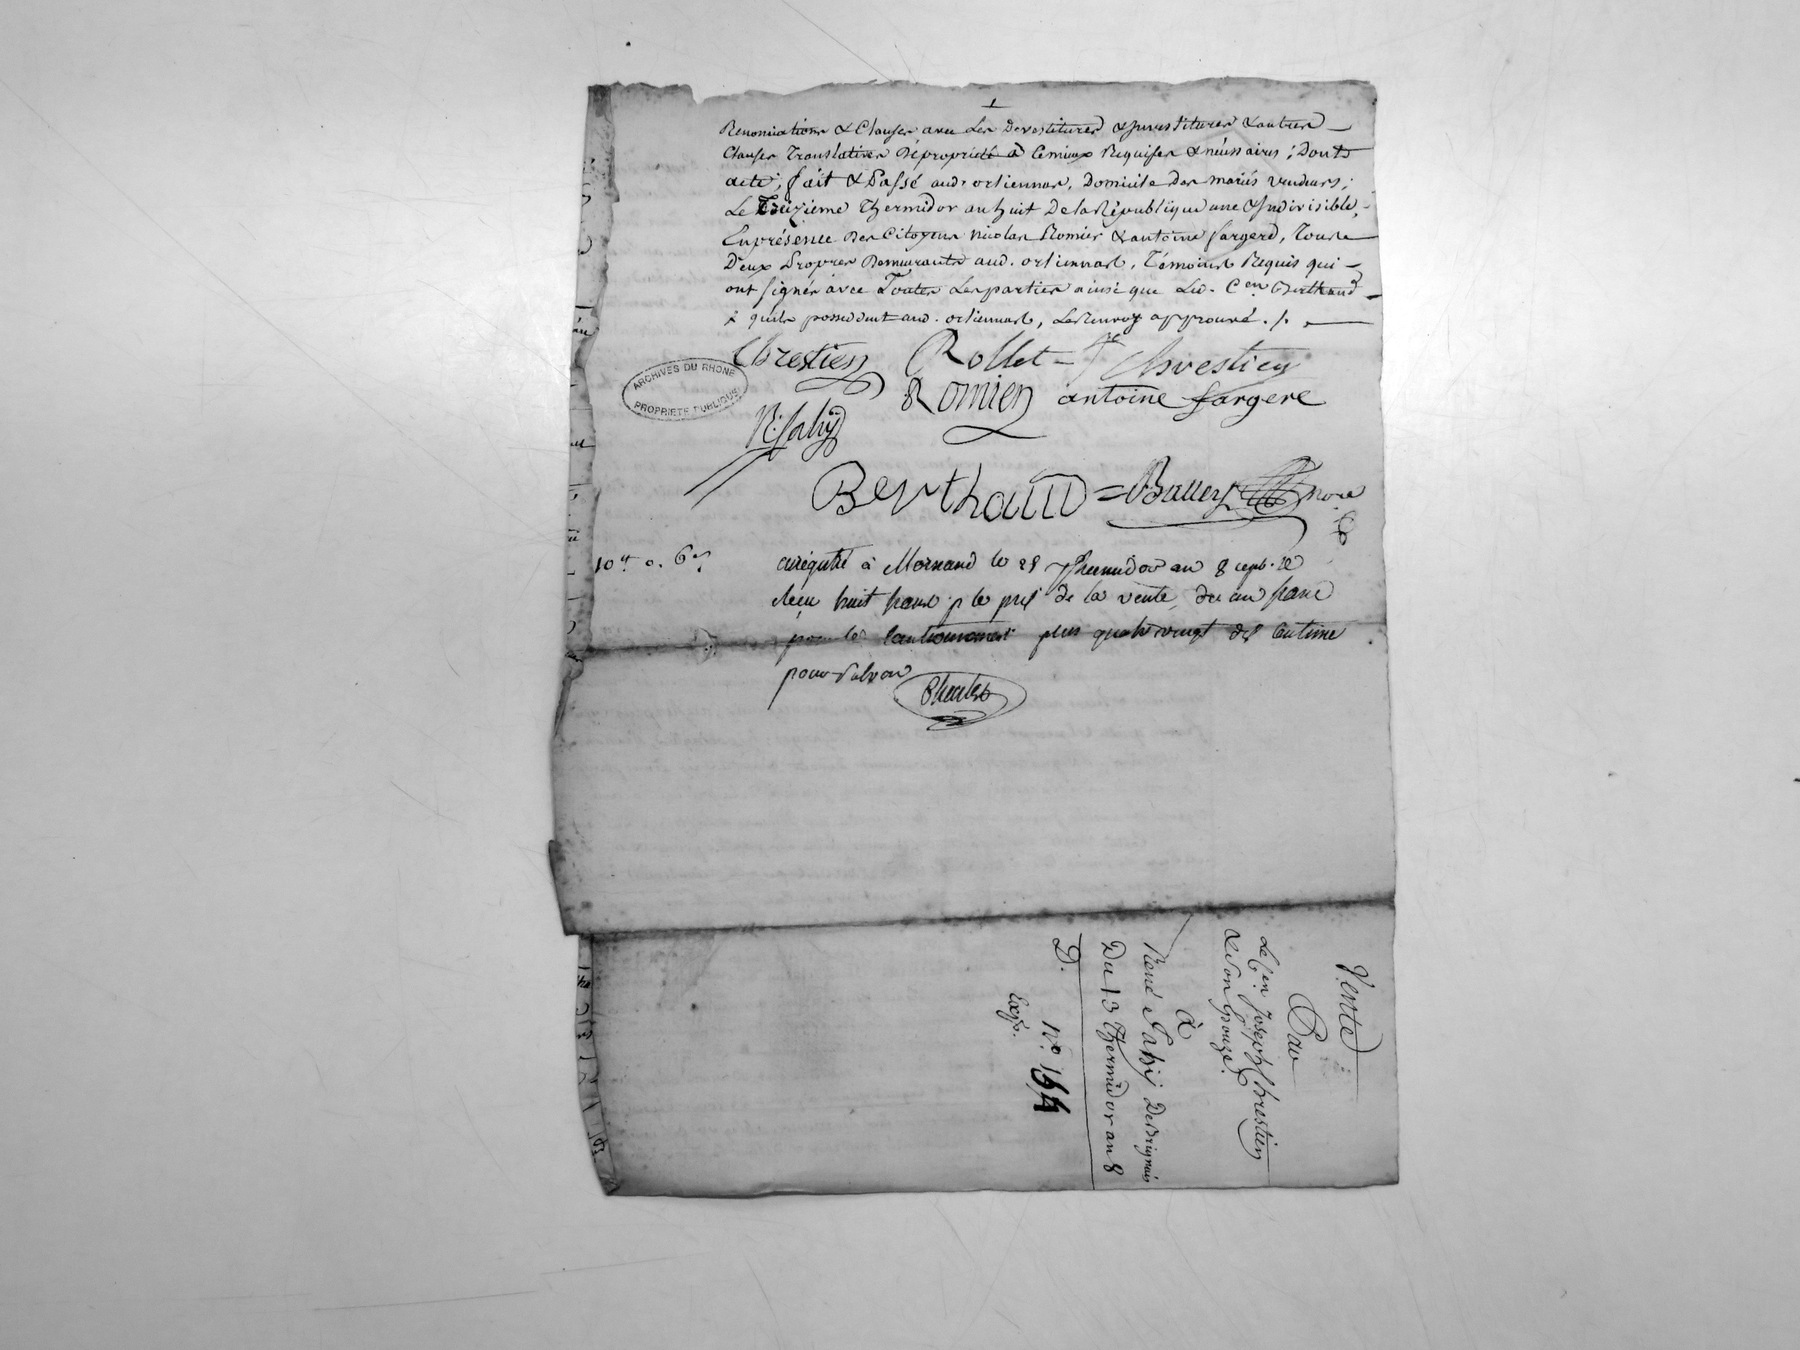 Renonciations & Clauses avec Les Devestitures & Investitures & autres
Clauses Translatives Dépropriété à Cemieux Requises & nécessaires ; Donts
acte ; fait & Passé aud. orliennas, Domicile Des mariés vendeurs ;
Le Treizieme Thermidor an huit De la République une & Indivisible,
En présence Des Citoyens Nicolas Romier & antoine fargere, Tous
D'eux Propres Demeurants aud. orlienas, Témoins Requis qui
ont signés avec Toutes Les parties ainsi que Led. Cen Berthaud
x quils possedent aud. orlienas, Le Renvoy approuvé ./.
Chrestien Rollet fe Chrestien
Romier antoine fargere
R. Sahy
Berthaud Ballery nore
ARCHIVES DU RHONE
PROPRIETE PUBLIQUE
10 o. 6
enregistré à Mornand le 28 Thermidor an 8 repb.
Reçu huit francs p le prix de la vente, du un franc
pour le Cautionnement plus quatre vingt dix Centime
pour
Vente
Par
Le Cen Joseph Chrestien
& Son Epouze.
à
René Sahy De Brignais
Du 13 Thermidor an 8
D.
No. 154
Exp.